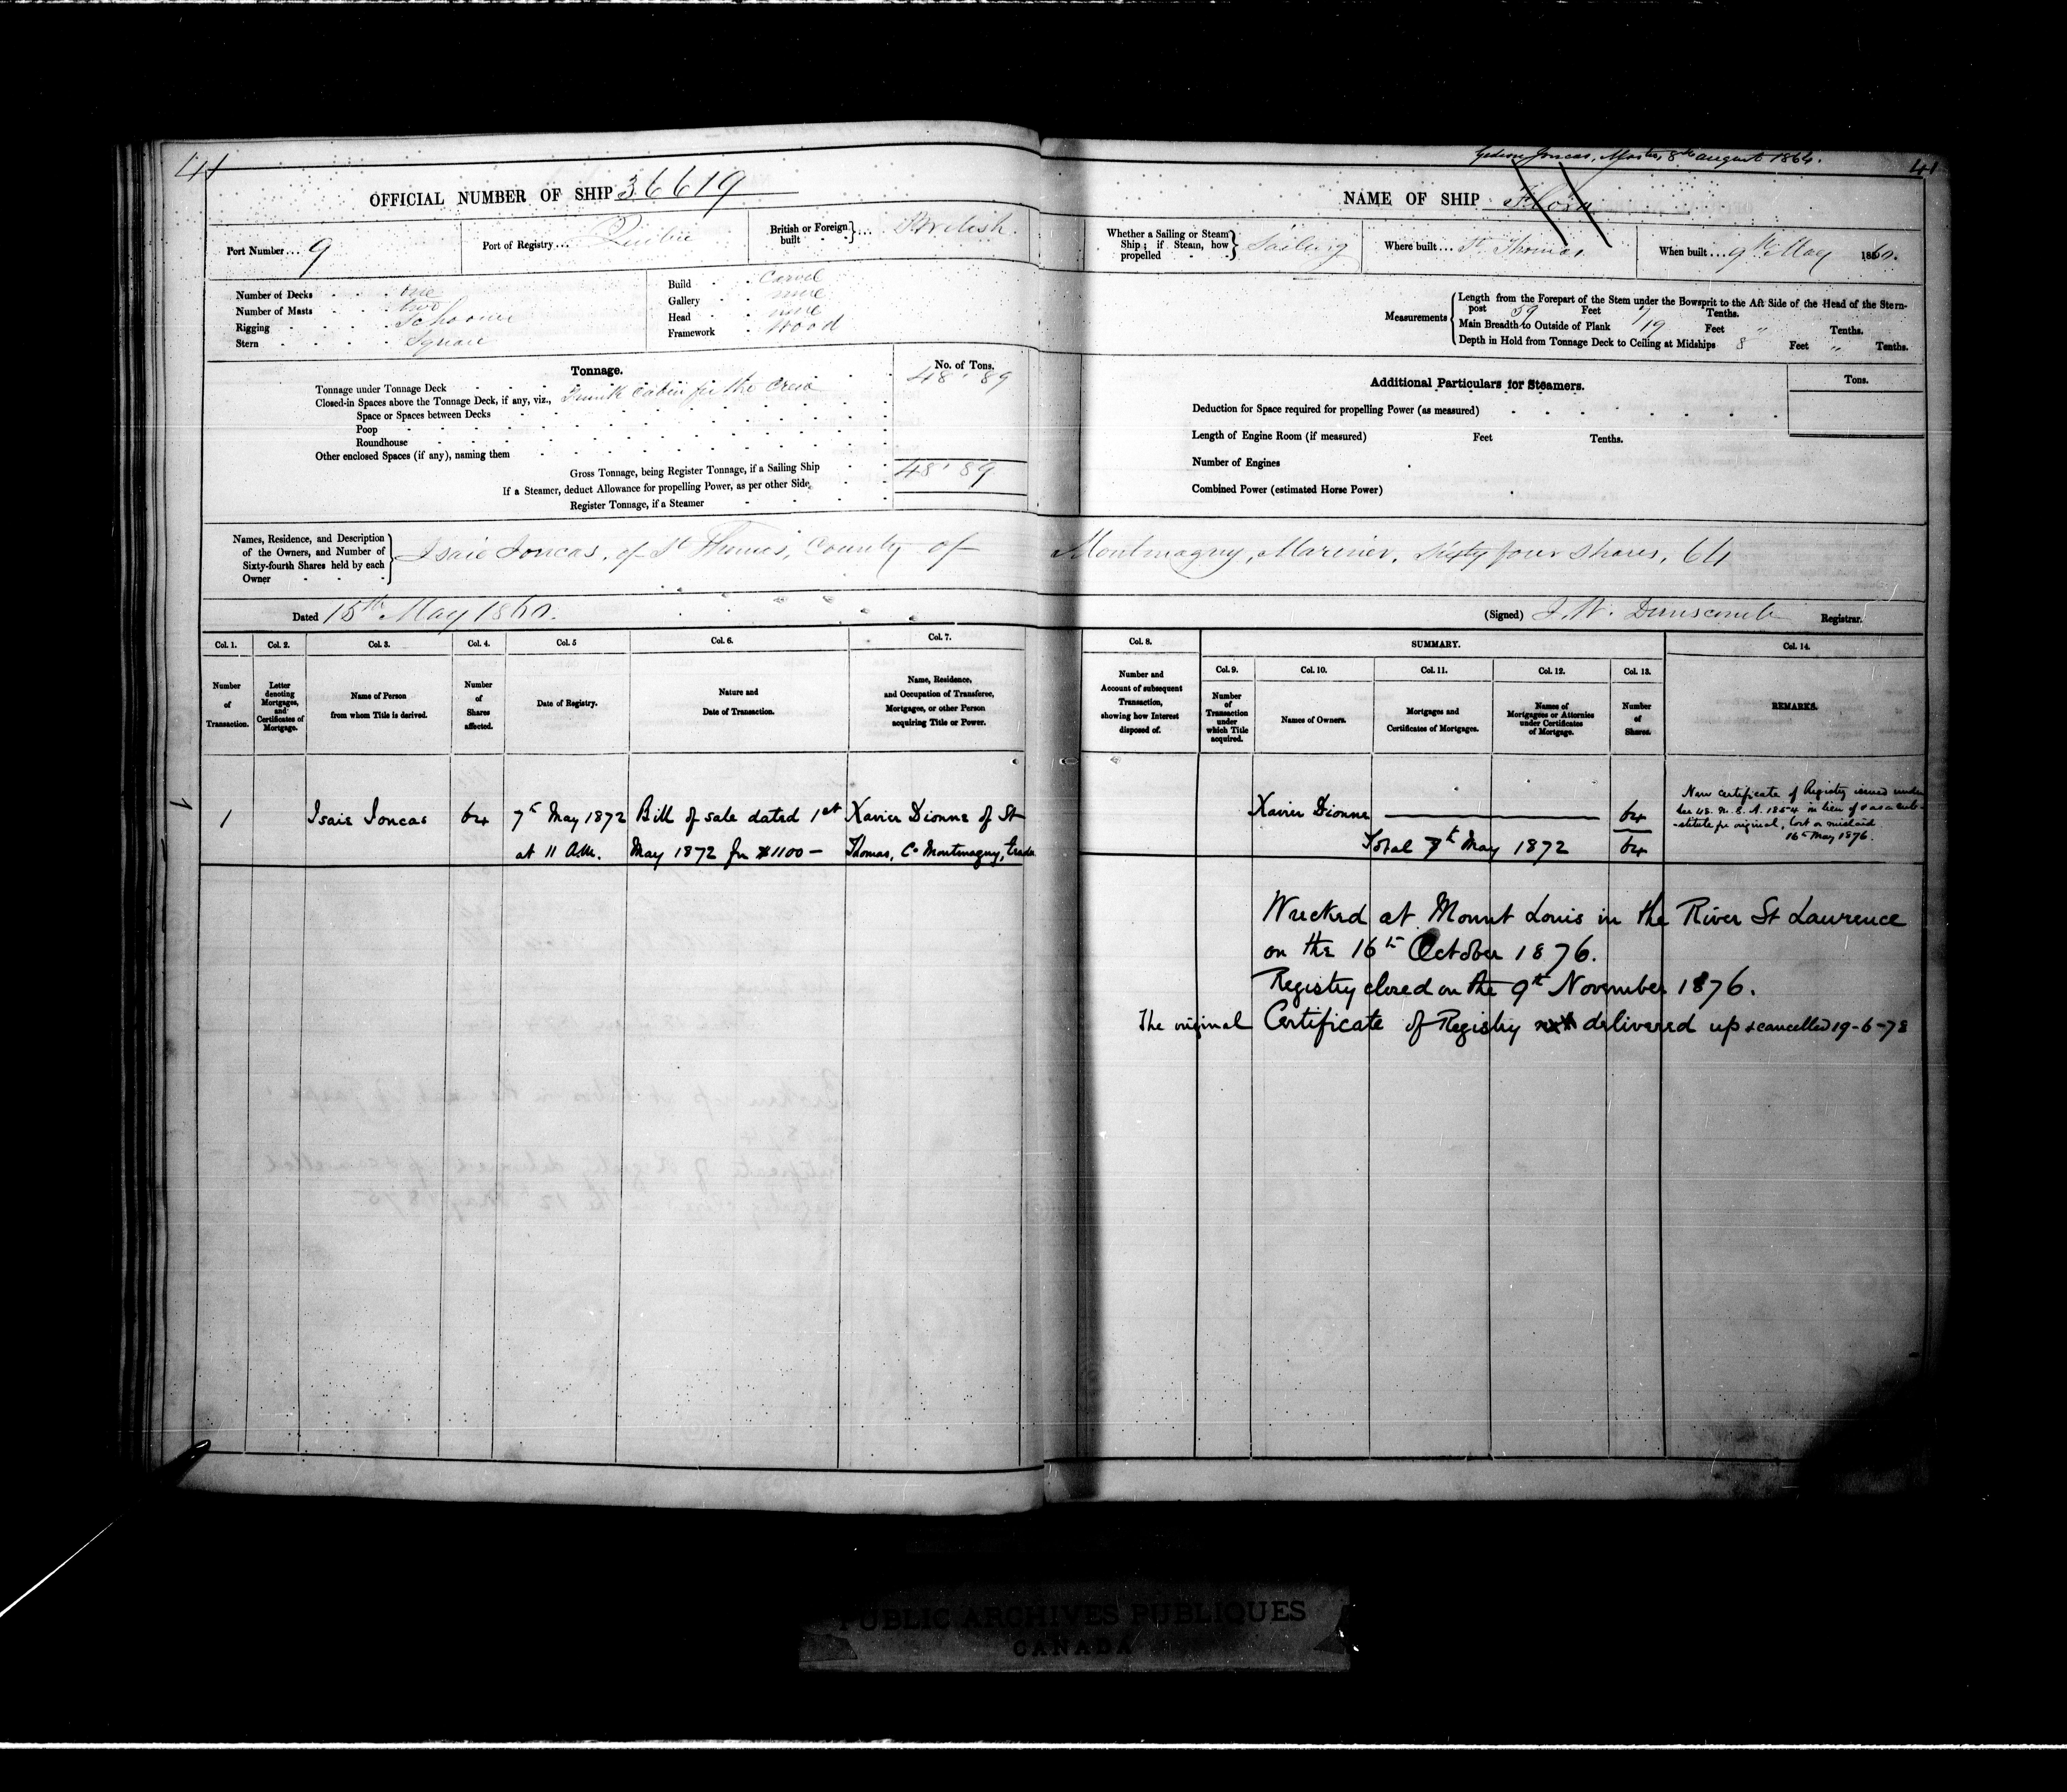 41
OFFICIAL NUMBER OF SHIP 36619
Port Number... 9
Port of Registry... Quebec
British or Foreign built British.
Number of Decks one
Number of Masts two
Rigging Schooner
Stern Square
Build Carvel
Gallery none
Head none
Framework Wood
Tonnage.
No. of Tons.
Tonnage under Tonnage Deck 48'89
Closed-in Spaces above the Tonnage Deck, if any, viz., Trunk cabin for the crew
Space or Spaces between Decks
Poop
Roundhouse
Other enclosed Spaces (if any), naming them
Gross Tonnage, being Register Tonnage, if a Sailing Ship 48'89
If a Steamer, deduct Allowance for propelling Power, as per other Side,
Register Tonnage, if a Steamer
Names, Residence, and Description of the Owners, and Number of Sixty-fourth Shares held by each Owner
Isaie Joncas, of St Thomas, County of
Dated 15th May 1860.
Col. 1.
Col. 2.
Col. 3.
Col. 4.
Col. 5
Col. 6.
Col. 7.
Number of Transaction.
Letter denoting Mortgages, and Certificates of Mortgage.
Name of Person from whom Title is derived.
Number of Shares affected.
Date of Registry.
Nature and Date of Transaction.
Name, Residence, and Occupation of Transferee, Mortgagee, or other Person acquiring Title or Power.
1
1 Isaie Joncas 64 7th May 1872 Bill of sale dated 1st Xavier Dionne of St
at 11 A.M. May 1872 for $1100 - Thomas, Co Montmagny, trader
Joncas, Master, 8th august 1864.
41
NAME OF SHIP Flora
Whether a Sailing or Steam Ship; if Steam, how propelled Sailing
Where built... St Thomas.
When built... 9th May 1860.
Measurements
Length from the Forepart of the Stem under the Bowsprit to the Aft Side of the Head of the Stern-
post 59 Feet 7 Tenths.
Main Breadth to Outside of Plank 19 Feet " Tenths.
Depth in Hold from Tonnage Deck to Ceiling at Midships 8 Feet " Tenths.
Additional Particulars for Steamers.
Tons.
Deduction for Space required for propelling Power (as measured)
Length of Engine Room (if measured) Feet Tenths.
Number of Engines
Combined Power (estimated Horse Power)
Montmagny, Mariner, Sixty four shares, 64
(Signed) J. W. Dunscomb Registrar.
Col. 8.
SUMMARY.
Col. 14.
Col. 9.
Col. 10.
Col. 11.
Col. 12.
Col. 13.
Number and Account of subsequent Transaction, showing how Interest disposed of.
Number of Transaction under which Title acquired.
Names of Owners.
Mortgages and Certificates of Mortgages.
Names of Mortgagees or Attornies under Certificates of Mortgage.
Number of Shares.
REMARKS.
Xavier Dionne 64
Total 7th May 1872 64
New certificate of Registry issued under
Sec 48. M. S. A. 1854 in lieu of & as a sub-
-stitute for original, lost or mislaid
16th May 1876.
Wrecked at Mount Louis in the River St Lawrence
on the 16th October 1876.
Registry closed on the 9th November 1876.
The original Certificate of Registry not delivered up & cancelled 19-6-78
PUBLIC ARCHIVES PUBLIQUES
CANADA